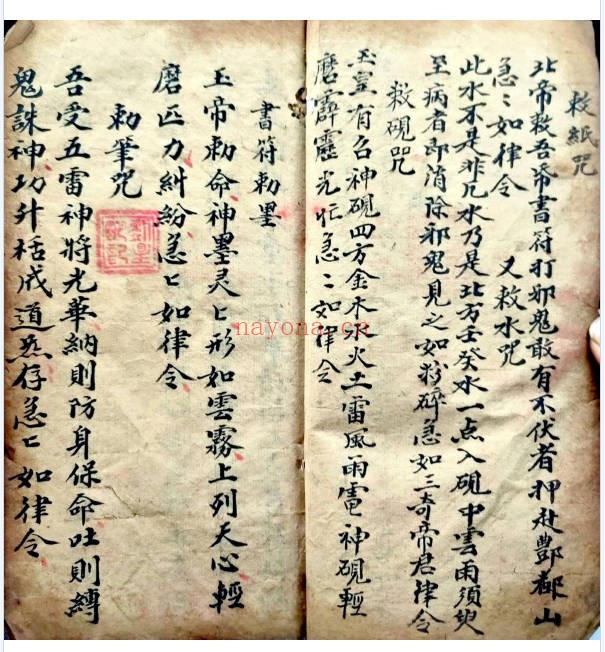 敕紙咒
北帝敕吾帋書符打邪鬼敢有不伏者押赴酆都山
急〻如律令　又敕水咒
此水不是非凡水乃是北方壬癸水一点入硯中雲雨須臾
至病者即消除邪鬼見之如粉碎急如三奇帝君律令
敕硯咒
玉皇有召神硯四方金木水火土雷風雨電神硯輕
磨霹靂光忙急〻如律令
書符勅墨
玉帝勅命神墨灵〻形如雲霧上列天心輕
磨匹力糾紛急〻如律令
勅筆咒
吾受五雷神將光華納則防身保命吐則縛
鬼誅神功升括成道炁存急〻如律令
nayona.cn